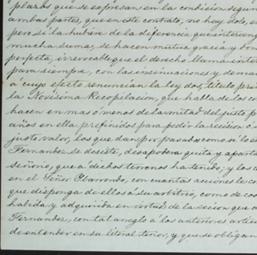 plazos que se expresan en la condición segun
ambas partes, que en este contrato, no hay dolo, e
pero si la hubiere de la diferencia que interveng
mucha suma, se hacen mútua gracia y don
perfecta, irrevocable que el derecho llama inter
para siempre, con las insinuaciones y demas
á cuyo efecto renuncian la ley dos, título pri
la Novísima Recopilacion, que habla de los co
hacen en mas ó menos de la mitad del justo p
años en ella prefinidos para pedir la recision ó
justo valor, los que dan por pasados como si lo es
Fernandez se desiste, desapodera quita y aparta
señorio, que á dichos terrenos ha tenido, y los c
en el Señor con cuantas acciones le co
que disponga de ellos á su arbitrio, como de cosa
habida y adquirida en virtud de la cesion que
Fernandez, con tal arreglo á los anteriores artícu
de entender en su literal tenor, y que se obligan